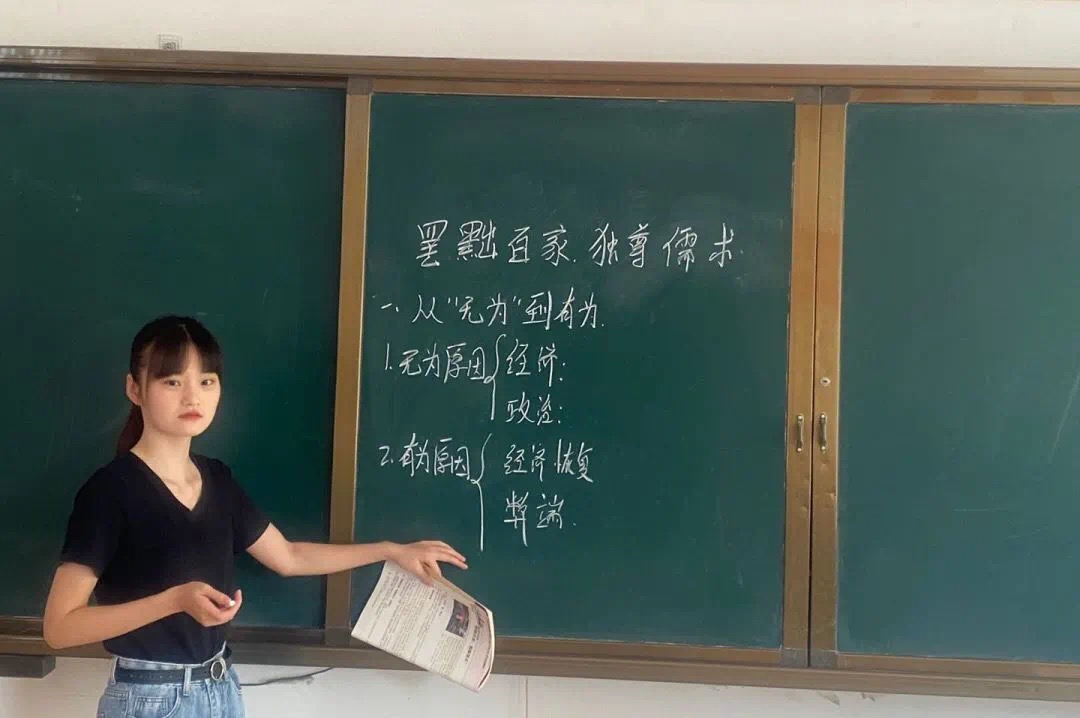 罢黜百家.独尊儒术.
一、从"无为"到有为.
1.无为原因{经济:
政治:
2.有为原因{经济恢复
弊端.